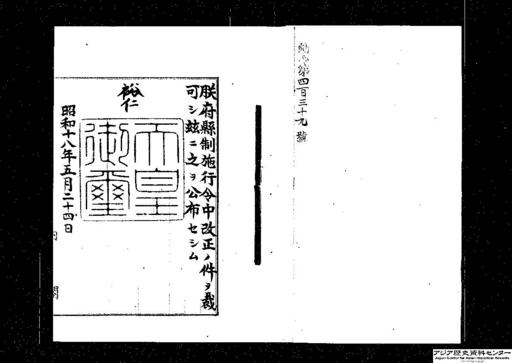 勅令第四百三十九號
朕府縣制施行令中改正ノ件ヲ裁
可シ茲ニ之ヲ公布セシム
裕仁
天皇
御璽
昭和十八年五月二十四日
内閣
アジア歴史資料センター
Japan Center for Asian Historical Records